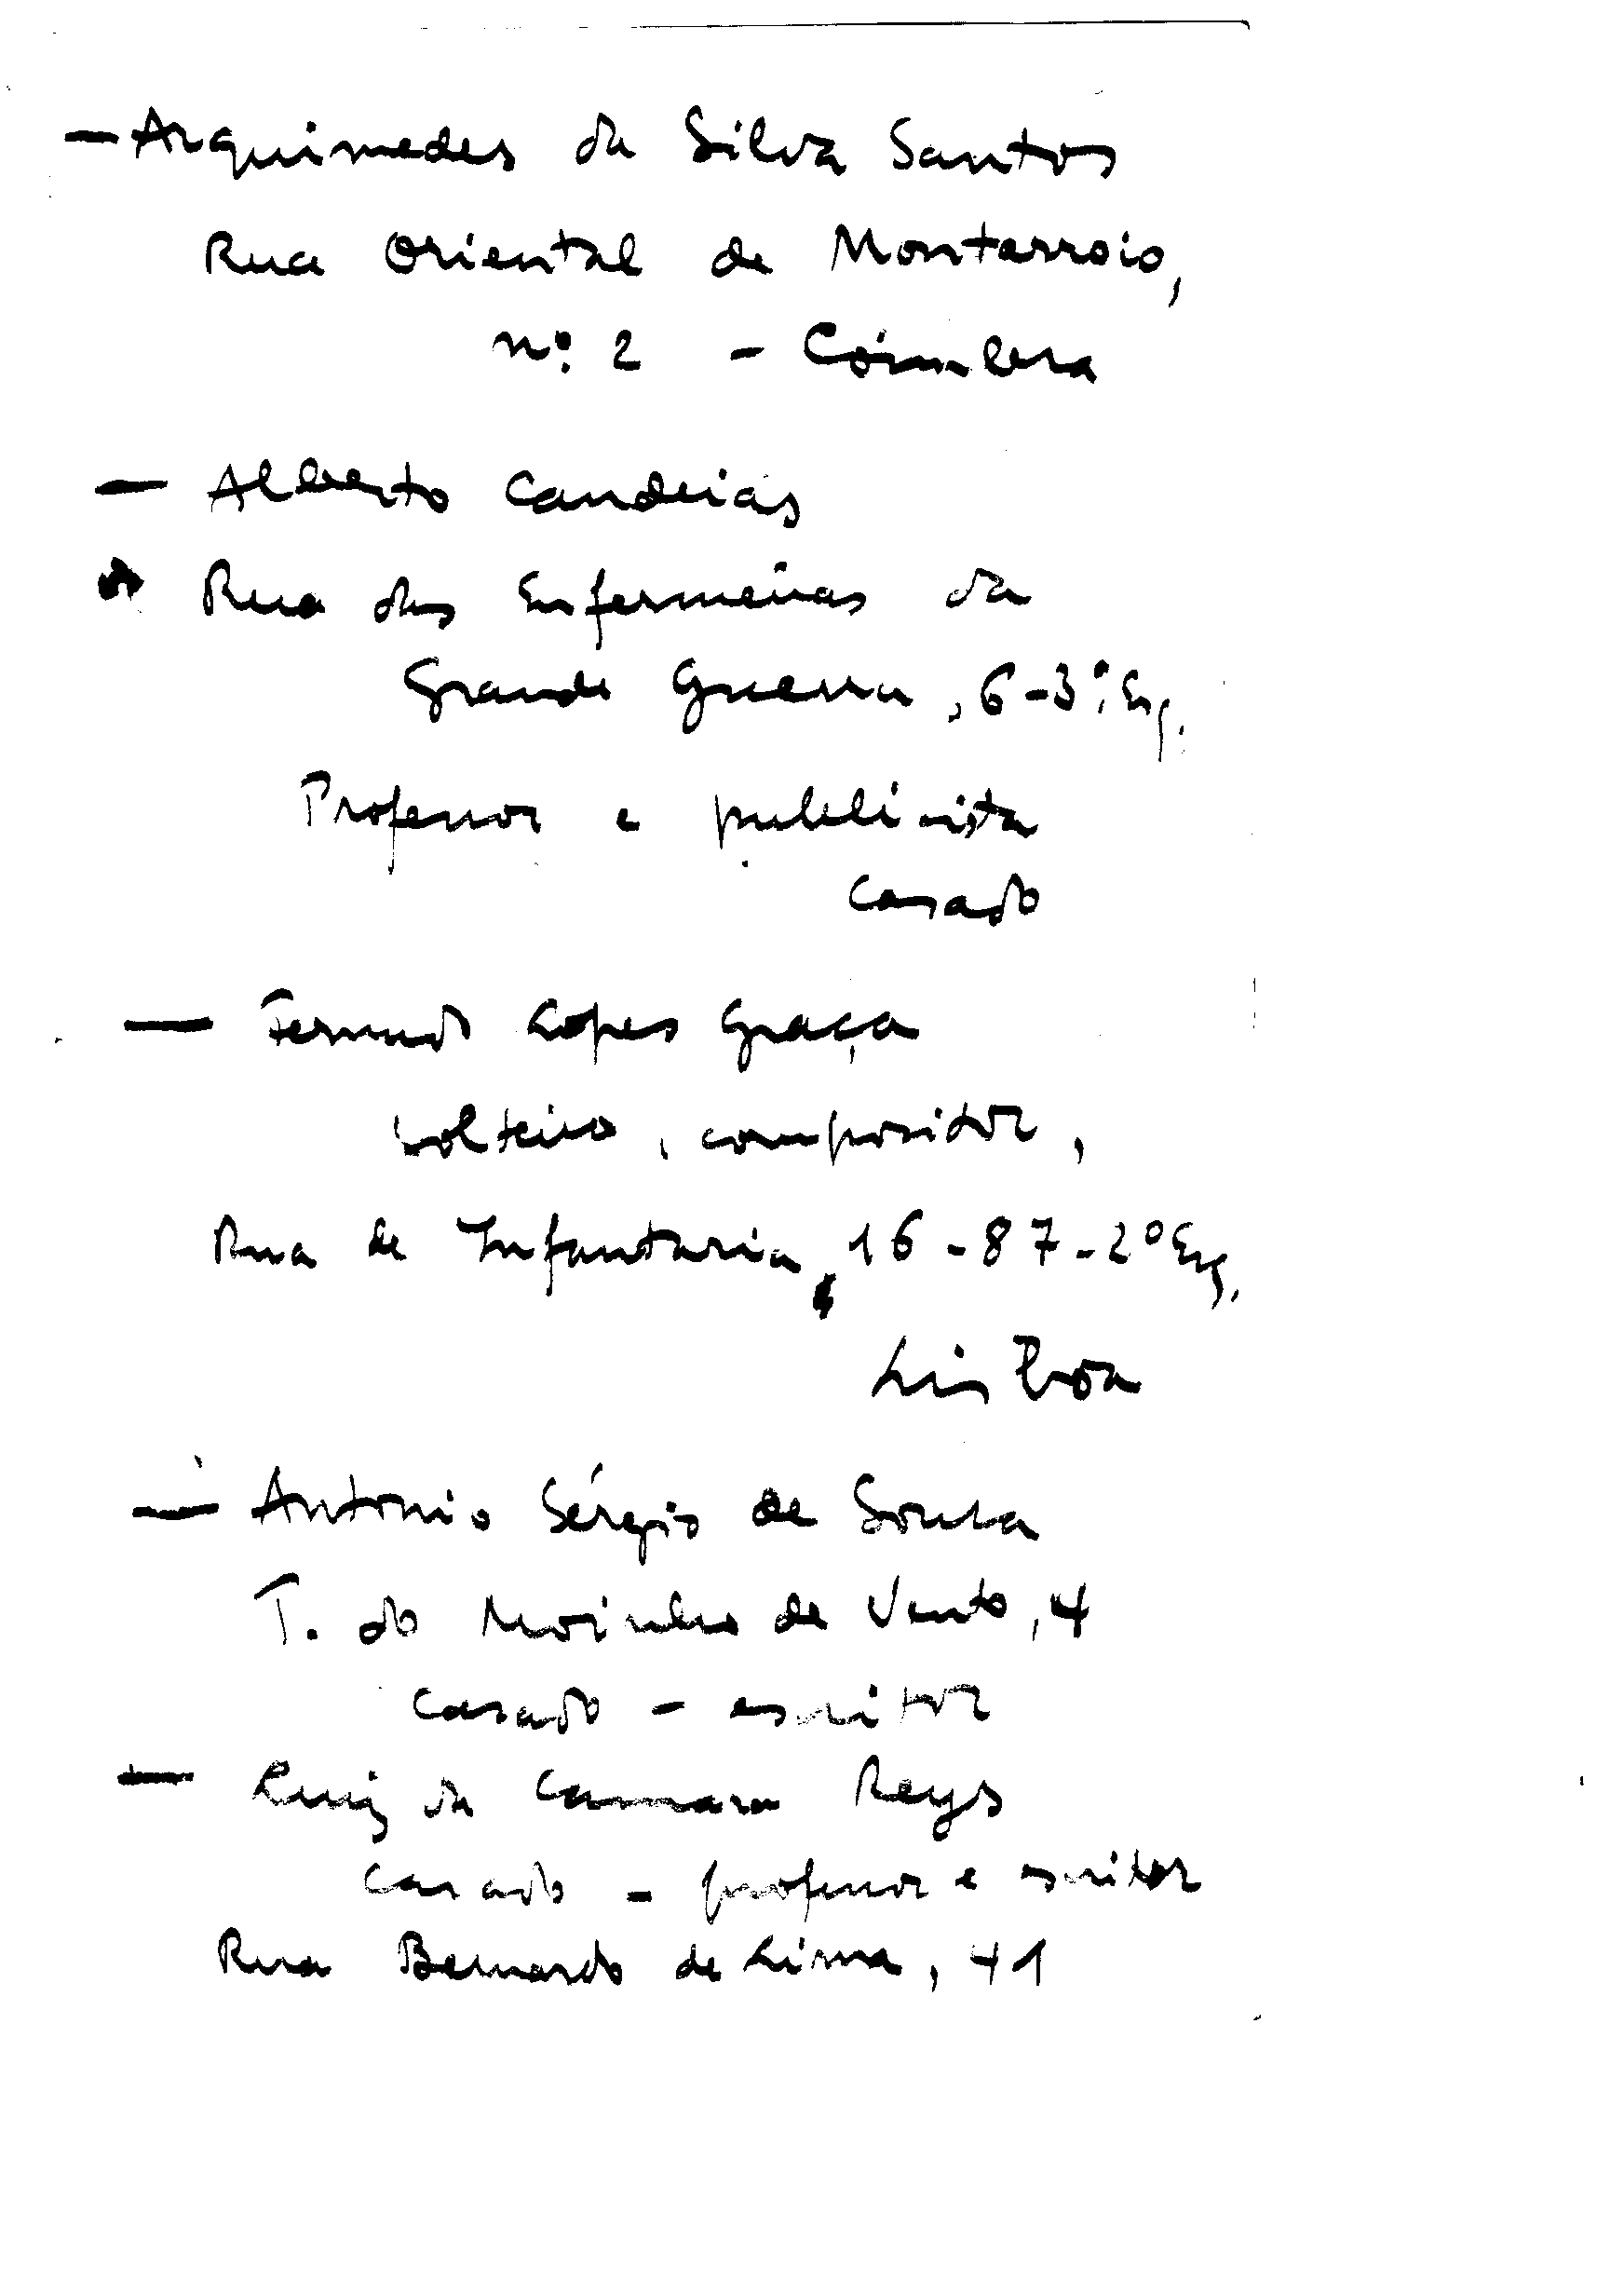 — Arquimedes da Silva Santos
Rua Oriental de Montarroio,
nº. 2 - Coimbra
— Alberto Candeias
Rua das Enfermeiras da
Grande Guerra, 6-3º. Esq.
Professor e publicista
casado
— Fernando Lopes Graça
solteiro, compositor,
Rua de Infantaria, 16-87-2º Esq.
Lisboa
— Antonio Sérgio de Sousa
T. do Moinho de Vento, 4
casado - escritor
— Luiz da Camara Reys
casado - professor e escritor
Rua Bernardo de Lima, 41